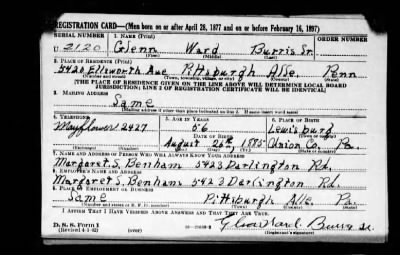 REGISTRATION CARD—(Men born on or after April 28, 1877 and on or before February 16, 1897)
SERIAL NUMBER 1. NAME (Print) ORDER NUMBER
U 2120 Glenn Ward Burris Sr.
(First) (Middle) (Last)
2. PLACE OF RESIDENCE (Print)
5420 Ellsworth Ave Pittsburgh Alle. Penn
(Number and street) (Town, township, village, or city) (County) (State)
[THE PLACE OF RESIDENCE GIVEN ON THE LINE ABOVE WILL DETERMINE LOCAL BOARD
JURISDICTION; LINE 2 OF REGISTRATION CERTIFICATE WILL BE IDENTICAL]
3. MAILING ADDRESS
Same
[Mailing address if other than place indicated on line 2. If same insert word same]
4. TELEPHONE 5. AGE IN YEARS 6. PLACE OF BIRTH
Mayflower 2427 56 Lewisburg
DATE OF BIRTH
August 26th, 1885 Union Co. Pa.
7. NAME AND ADDRESS OF PERSON WHO WILL ALWAYS KNOW YOUR ADDRESS
Margaret S. Benham 5423 Darlington Rd.
8. EMPLOYER'S NAME AND ADDRESS
Margaret S. Benham 5423 Darlington Rd.
9. PLACE OF EMPLOYMENT OR BUSINESS
Same Pittsburgh Alle. Pa.
(Number and street or R. F. D. number) (Town) (County) (State)
I AFFIRM THAT I HAVE VERIFIED ABOVE ANSWERS AND THAT THEY ARE TRUE.
D. S. S. Form 1
(Revised 4-1-42) (over) Glenn Ward Burris Sr.
(Registrant's signature)